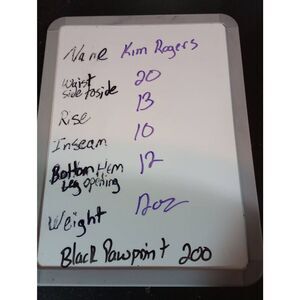 Name Kim Rogers
Waist side to side 20
Rise 13
Inseam 10
Bottom Hem Leg opening 12
Weight 12oz
Black Pawprint 200